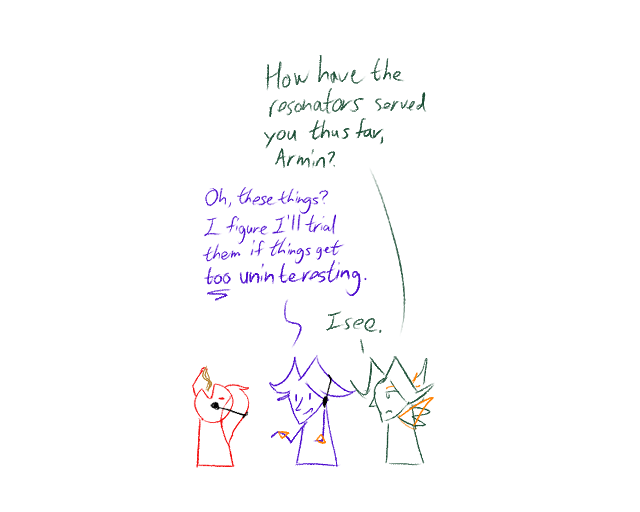 How have the
resonators served
you thus far,
Armin?
Oh, these things?
I figure I'll trial
them if things get
too uninteresting.
I see.